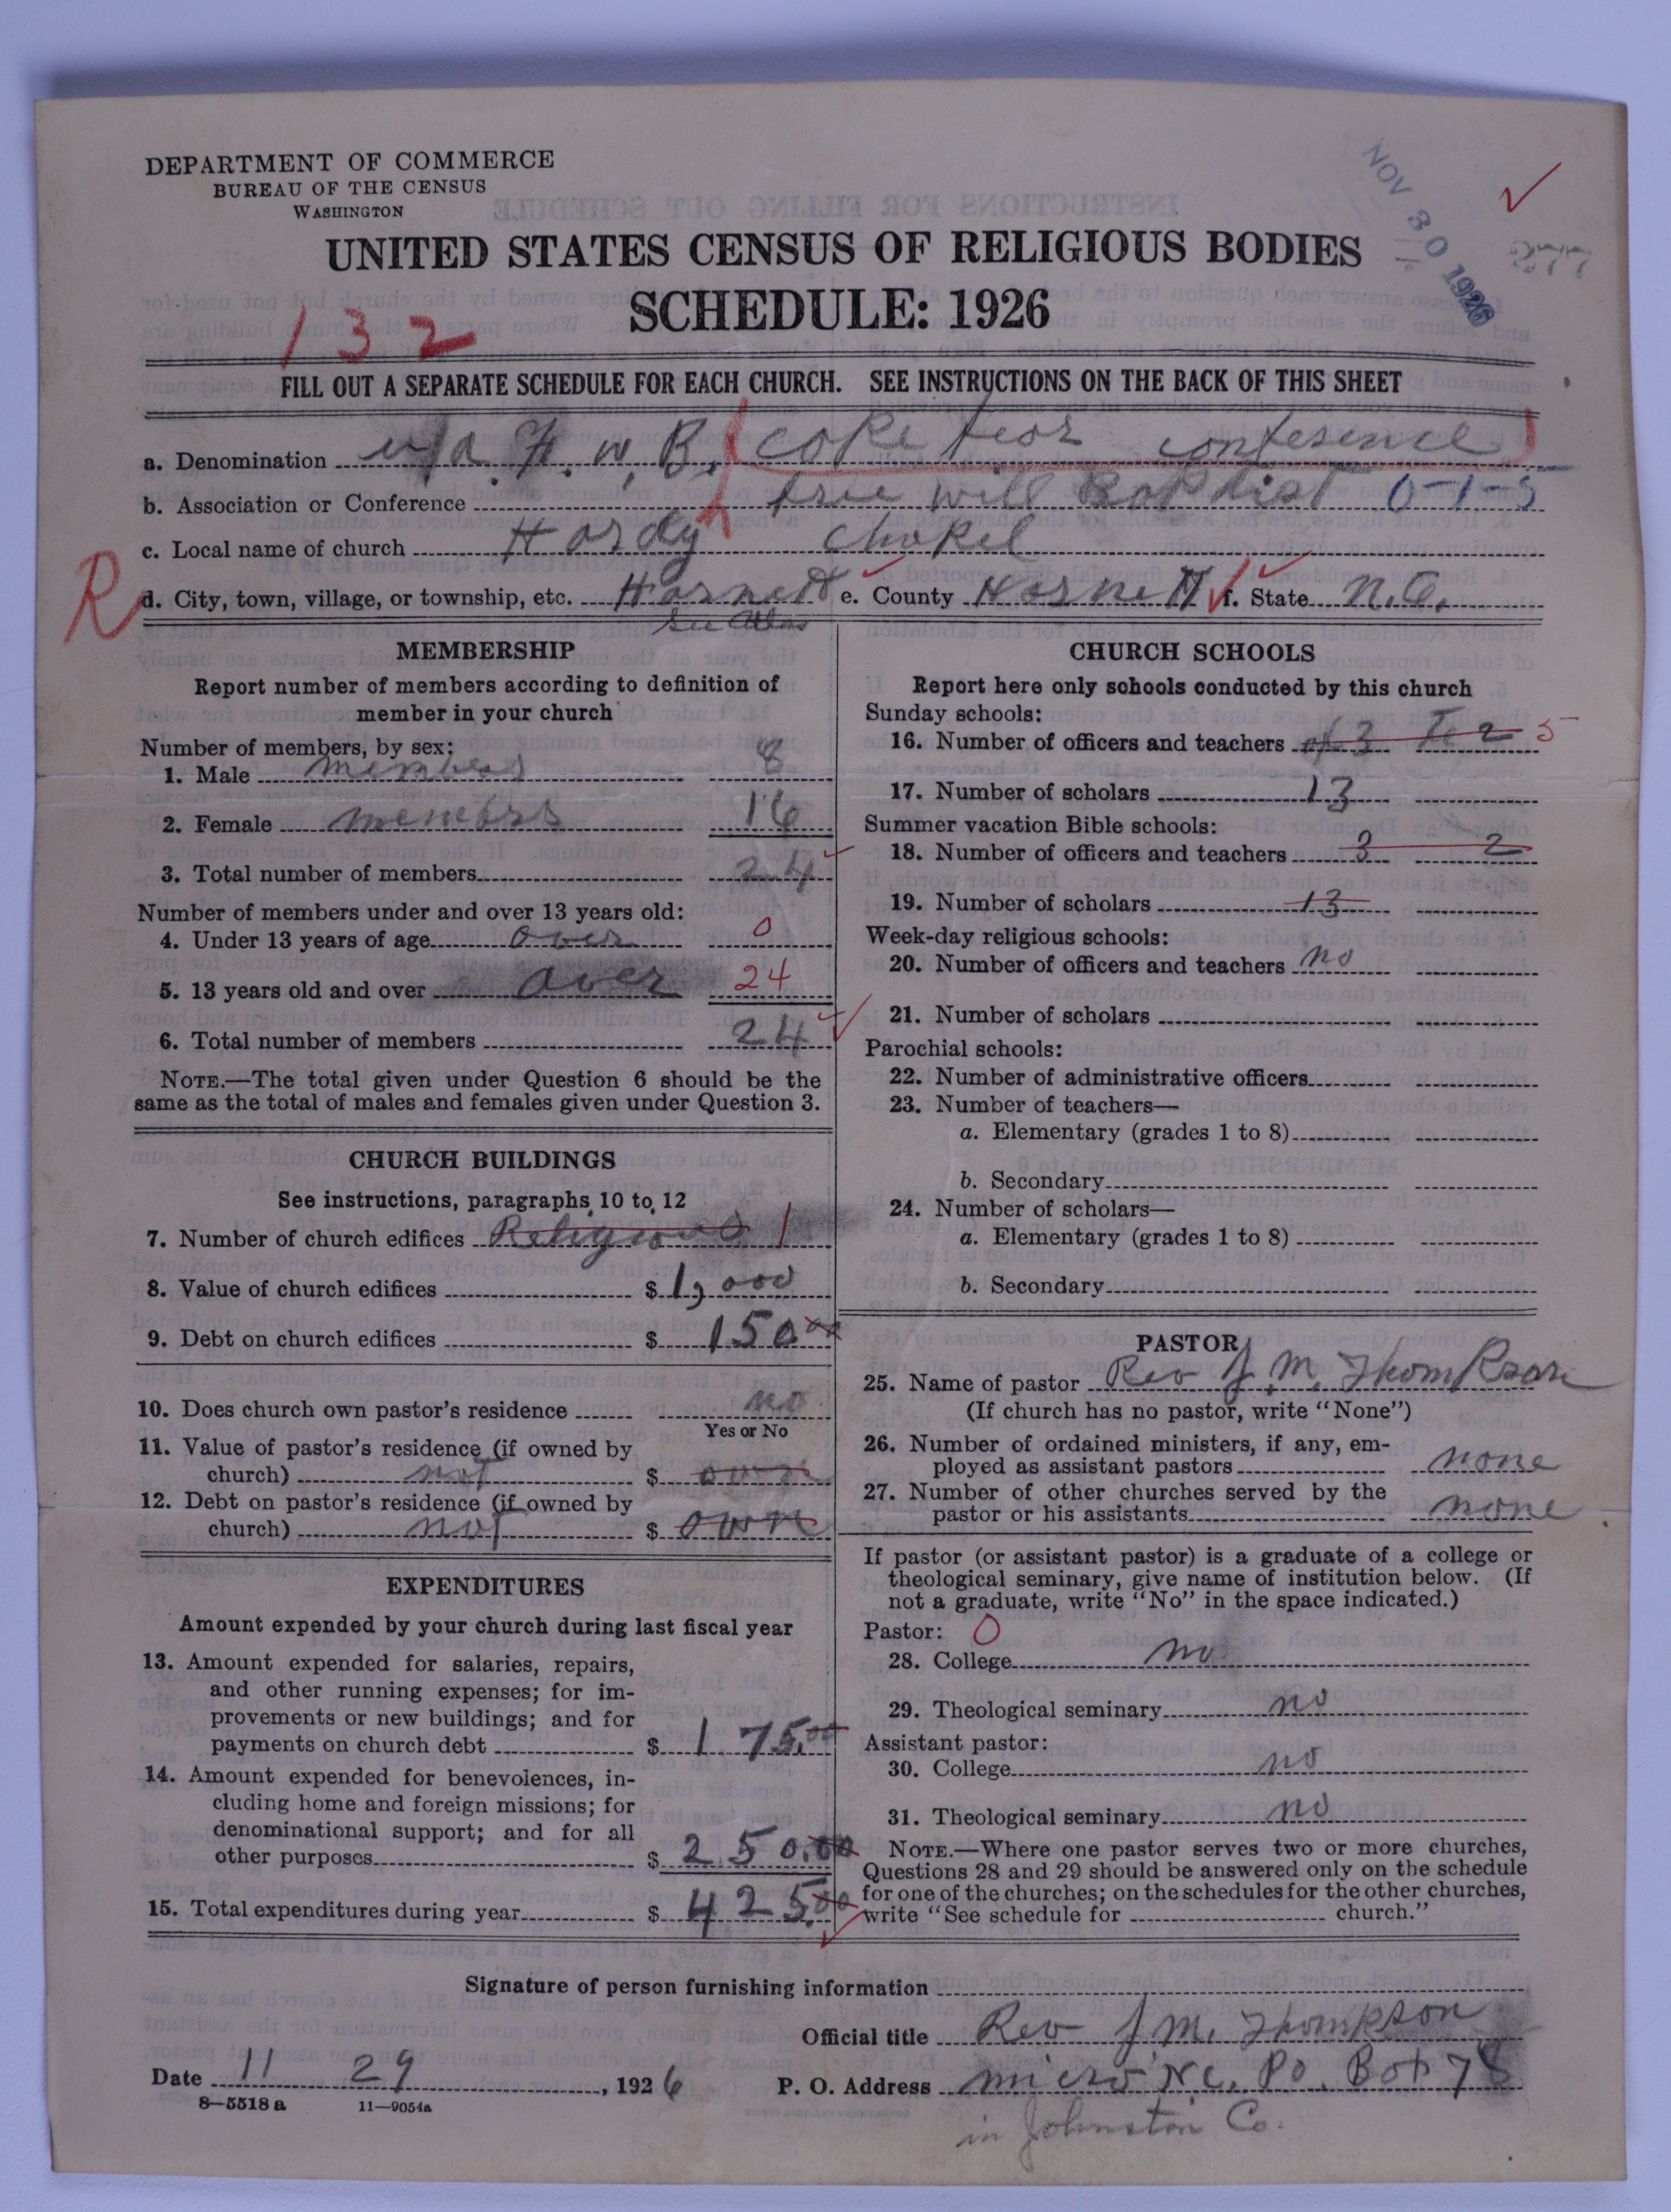 DEPARTMENT OF COMMERCE
BUREAU OF THE CENSUS
WASHINGTON
NOV 30 1926
277
UNITED STATES CENSUS OF RELIGIOUS BODIES
SCHEDULE: 1926
132
FILL OUT A SEPARATE SCHEDULE FOR EACH CHURCH. SEE INSTRUCTIONS ON THE BACK OF THIS SHEET
a. Denomination F. W. B. (Cope fear conference)
b. Association or Conference free will Baptist 0-1-5
c. Local name of church Hardy Chapel
R
d. City, town, village, or township, etc. Harnett e. County Harnett f. State N.C.
See Atlas
MEMBERSHIP
Report number of members according to definition of
member in your church
Number of members, by sex:
1. Male members 8
2. Female members 16
3. Total number of members 24
Number of members under and over 13 years old:
4. Under 13 years of age over 0
5. 13 years old and over over 24
6. Total number of members 24
NOTE.—The total given under Question 6 should be the
same as the total of males and females given under Question 3.
CHURCH BUILDINGS
See instructions, paragraphs 10 to 12
7. Number of church edifices Religious 1
8. Value of church edifices $ 1,000
9. Debt on church edifices $ 150.00
10. Does church own pastor's residence no
Yes or No
11. Value of pastor's residence (if owned by
church) not $ own
12. Debt on pastor's residence (if owned by
church) not $ own
EXPENDITURES
Amount expended by your church during last fiscal year
13. Amount expended for salaries, repairs,
and other running expenses; for im-
provements or new buildings; and for
payments on church debt $ 175.00
14. Amount expended for benevolences, in-
cluding home and foreign missions; for
denominational support; and for all
other purposes $ 250.00
15. Total expenditures during year $ 425.00
CHURCH SCHOOLS
Report here only schools conducted by this church
Sunday schools:
16. Number of officers and teachers of 3 Te 2 5
17. Number of scholars 13
Summer vacation Bible schools:
18. Number of officers and teachers 3 2
19. Number of scholars 13
Week-day religious schools:
20. Number of officers and teachers no
21. Number of scholars
Parochial schools:
22. Number of administrative officers
23. Number of teachers—
a. Elementary (grades 1 to 8)
b. Secondary
24. Number of scholars—
a. Elementary (grades 1 to 8)
b. Secondary
PASTOR
25. Name of pastor Rev J. M. Thompson
(If church has no pastor, write "None")
26. Number of ordained ministers, if any, em-
ployed as assistant pastors none
27. Number of other churches served by the
pastor or his assistants none
If pastor (or assistant pastor) is a graduate of a college or
theological seminary, give name of institution below. (If
not a graduate, write "No" in the space indicated.)
Pastor: 0
28. College no
29. Theological seminary no
Assistant pastor:
30. College no
31. Theological seminary no
NOTE.—Where one pastor serves two or more churches,
Questions 28 and 29 should be answered only on the schedule
for one of the churches; on the schedules for the other churches,
write "See schedule for church."
Signature of person furnishing information
Official title Rev J. M. Thompson
Date 11 29, 1926 P. O. Address Micro N.C. Po. Box 78
8—5518a 11—9054a
in Johnston Co.